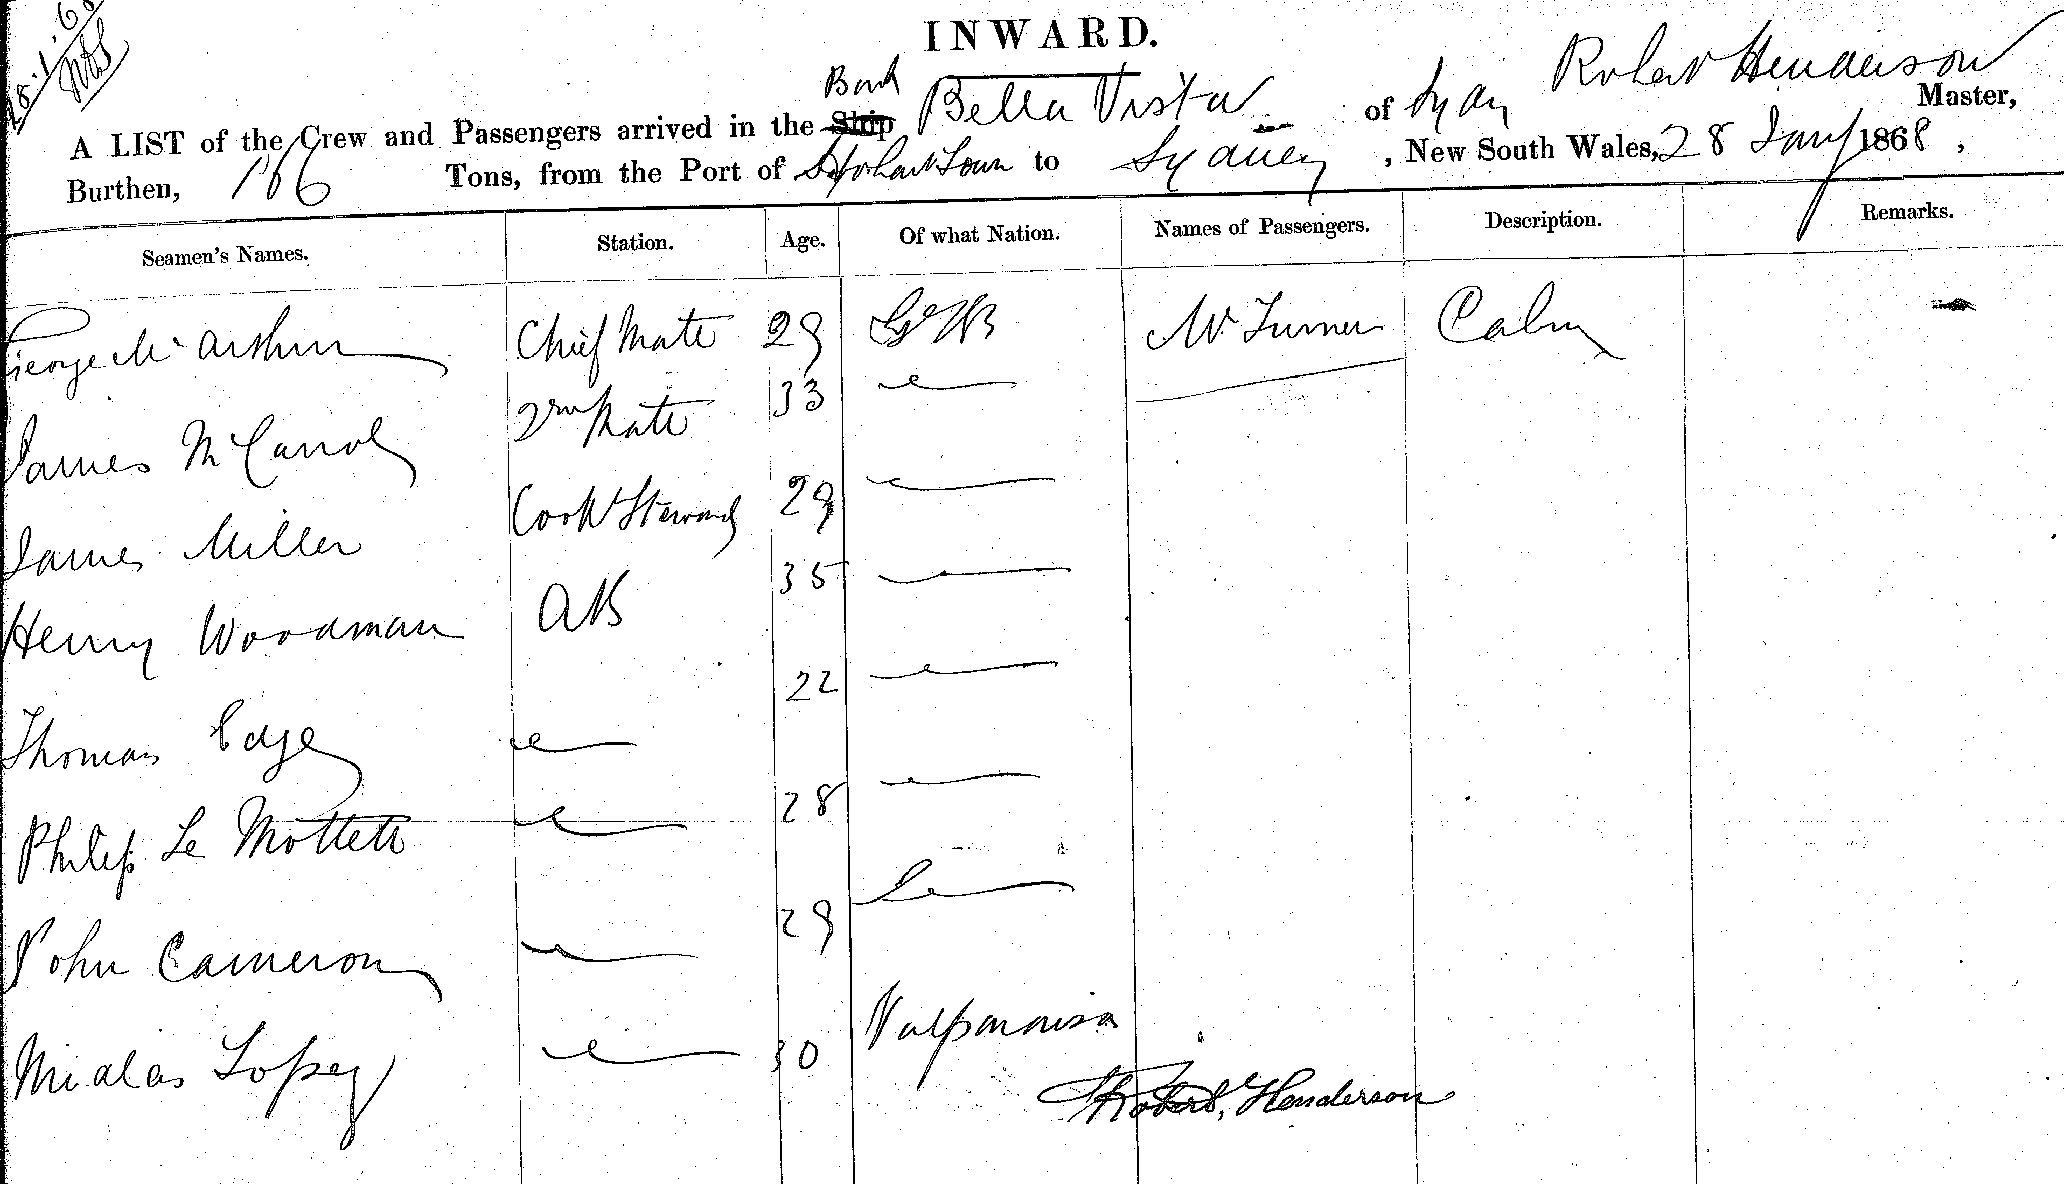 INWARD.
A LIST of the Crew and Passengers arrived in the Ship Bark Bella Vista of Sydny Robert Henderson Master,
Burthen, 166 Tons, from the Port of Hobart Town to Sydney, New South Wales, 28 Jany 1868,
Seamen's Names. Station. Age. Of what Nation. Names of Passengers. Description. Remarks.
George McArthur Chief Mate 29 Gt B Mr Turner Cabin
James McCarrol 2nd Mate 33
James Miller Cook & Steward 29
Henry Woodman AB 35
Thomas Edge 22
Philip Le Mottett 28
John Cameron 29
Nicalas Lopez 30 Valparaisa
Robert Henderson